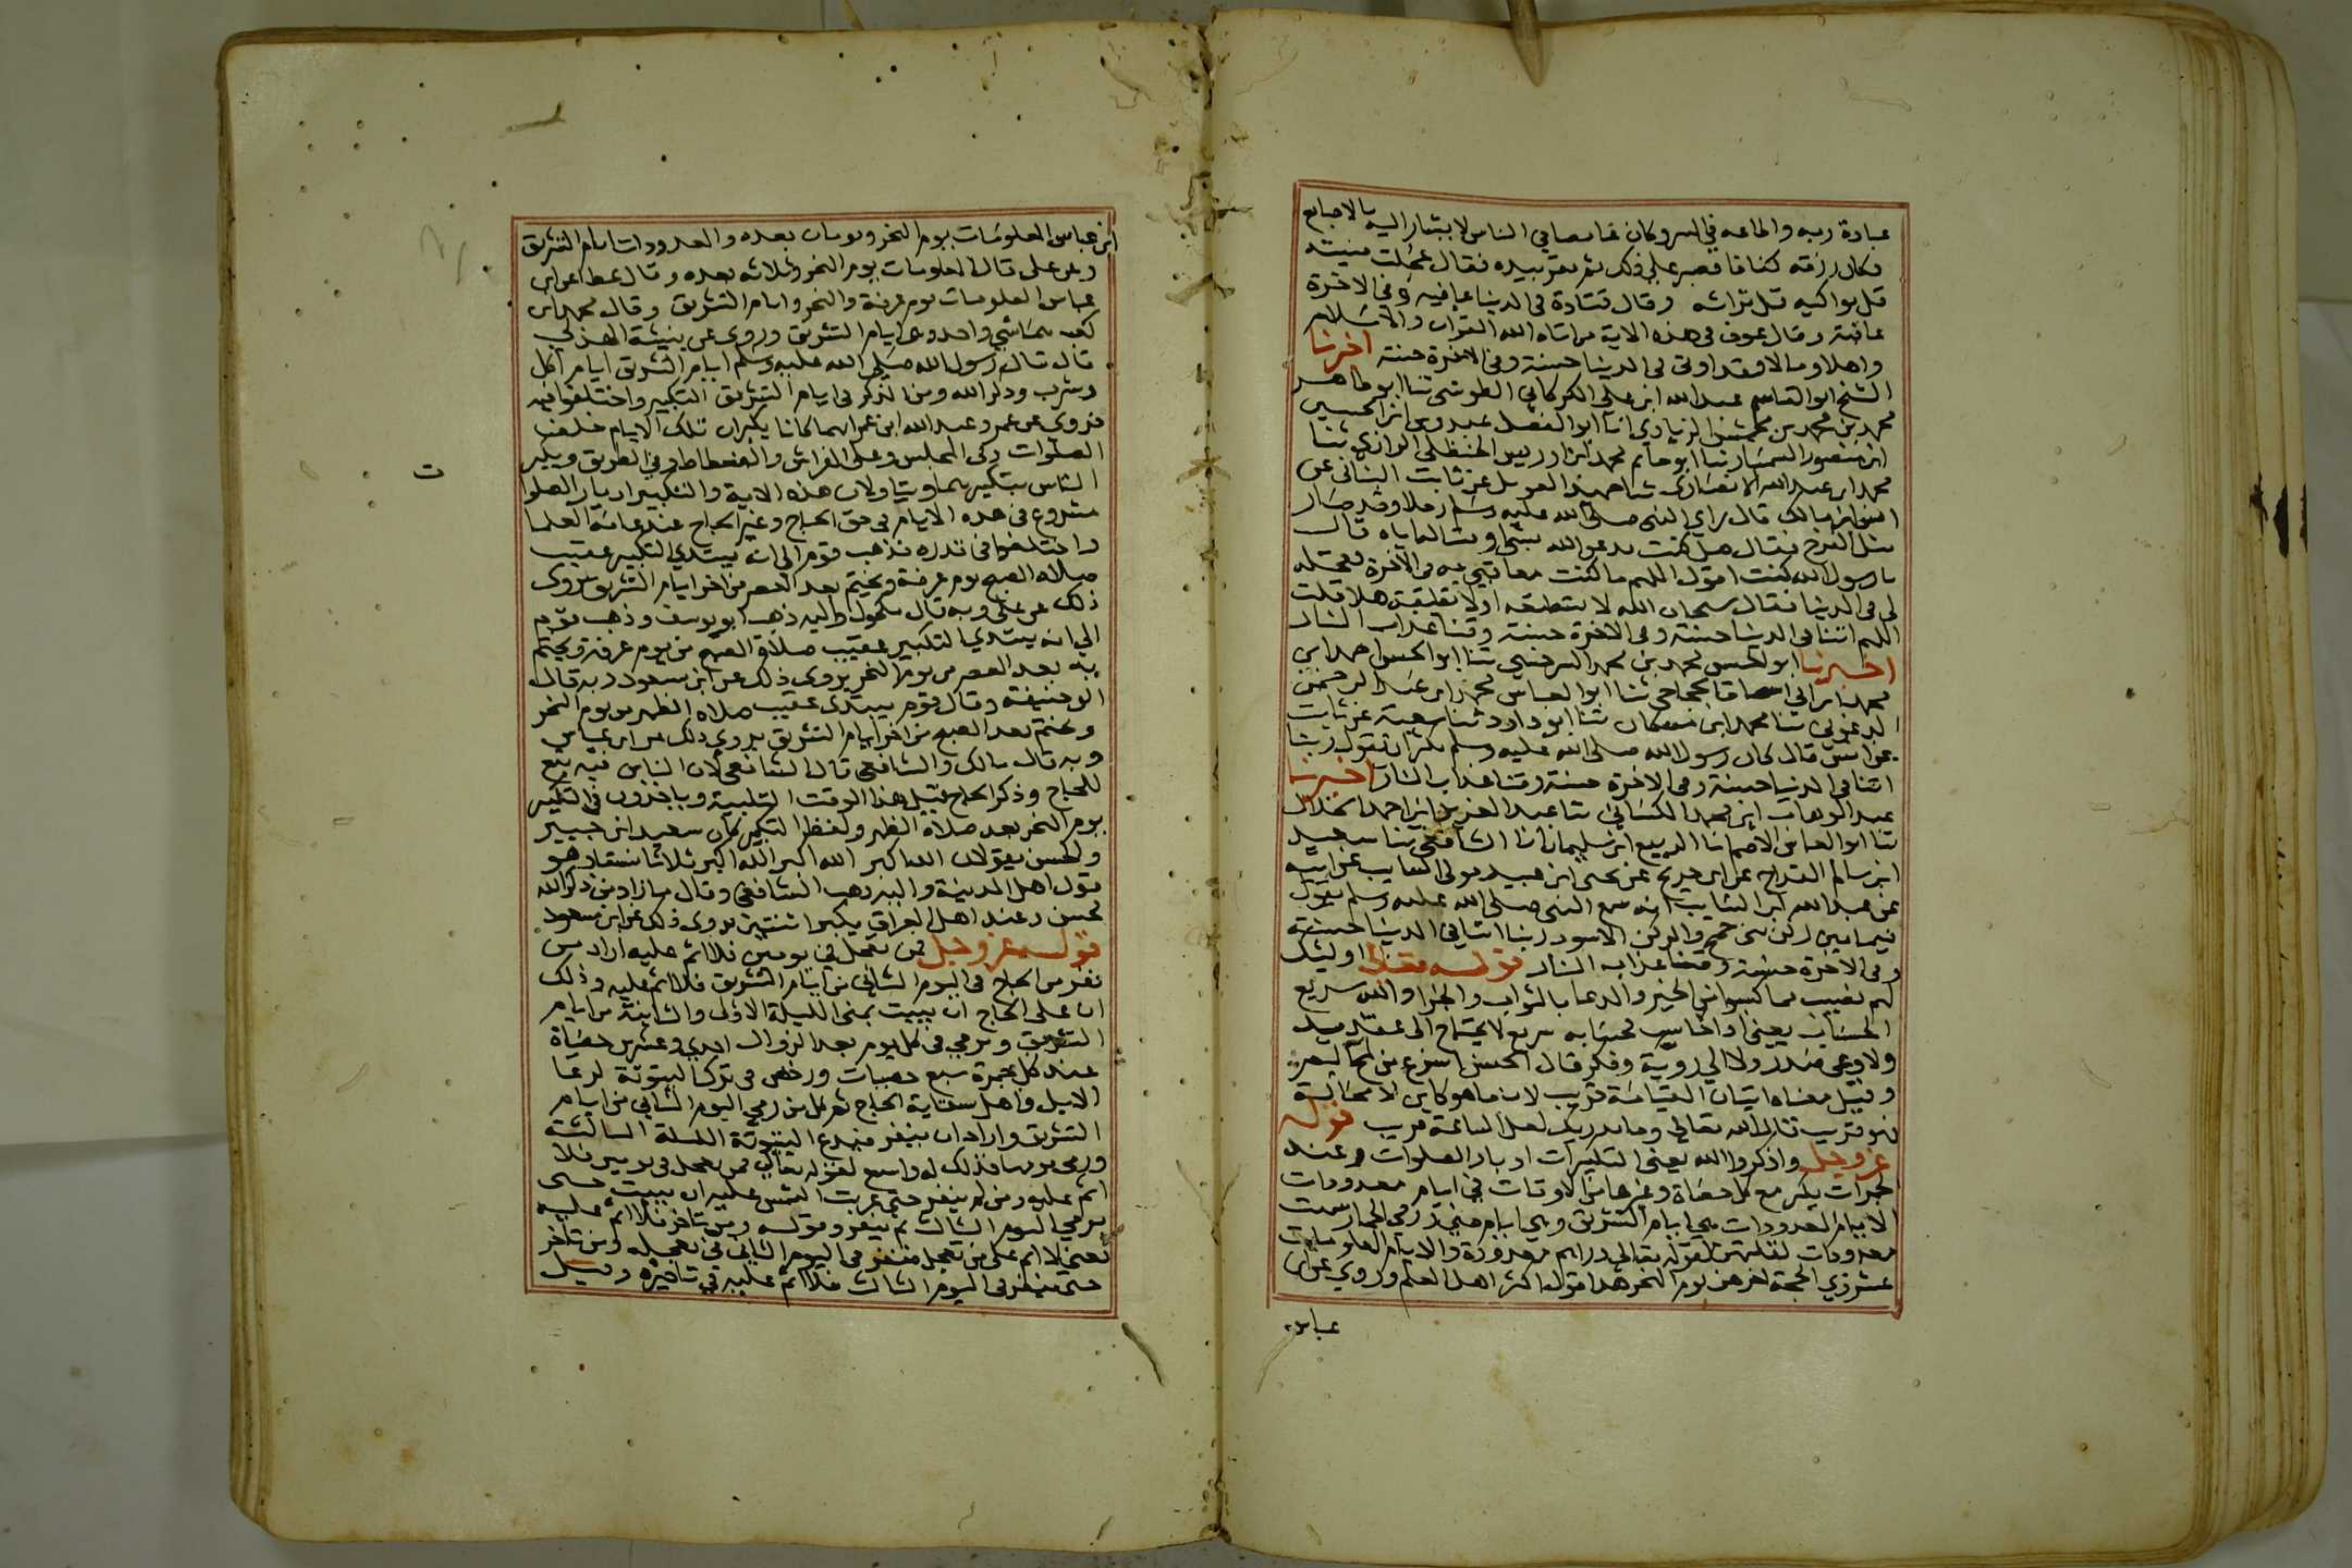 عبادة ربه واطاعه في السر وكان غامضا في الناس لا يشار اليه بالاصابع
وكان رزقه كفافا فصبر على ذلك ثم نقر بيده فقال عجلت منيته
قل بواكيه قل تراثه وقال قتادة في الدنيا عافيه وفي الاخرة
عافية وقال عوف في هذه الاية من اتاه الله القران والاسلام
واهلا ومالا وقد اوتي في الدنيا حسنة وفي الاخرة حسنة اخبرنا
الشيخ ابو القاسم عبد الله ابن علي الكركاني الطوسي ثنا ابو طاهر
محمد بن محمد بن محمش الزيادي انا ابو الفضل عبدوس ابن الحسين
ابن منصور السمسار ثنا ابو حاتم محمد ابن ادريس الحنظلي الرازي ثنا
محمد ابن عبد الله الانصاري ثنا حميد الطويل عن ثابت البناني عن
انس ابن مالك قال راي النبي صلى الله عليه وسلم رجلا وقد صار
مثل الفرخ فقال هل كنت تدعو الله بشي او تساله اياه قال
يا رسول الله كنت اقول اللهم ما كنت معاقبي به في الآخرة فعجله
لي في الدنيا فقال سبحان الله لا تستطيعه او لا تطيقه هلا قلت
اللهم اتنا في الدنيا حسنة وفي الاخرة حسنة وقنا عذاب النار
اخبرنا ابو الحسن محمد بن محمد السرخسي ثنا ابو الحسن احمد ابن
محمد ابن اسحاق الحجاجي ثنا ابو العباس محمد ابن عبد الرحمن
الدغولي ثنا محمد ابن مشكان ثنا ابو داود ثنا شعبة عن ثابت
عن انس قال كان رسول الله صلى الله عليه وسلم يكثر ان يقول ربنا
اتنا في الدنيا حسنة وفي الاخرة حسنة وقنا عذاب النار اخبرنا
عبد الوهاب ابن محمد الكسائي ثنا عبد العزيز ابن احمد الخلال
ثنا ابو العباس الاصم انا الربيع ابن سليمان انا الشافعي ثنا سعيد
ابن سالم القداح عن ابن جريج عن يحيى ابن عبيد مولى السايب عن ابيه
عن عبد الله ابن السايب انه سمع النبي صلى الله عليه وسلم يقول
فيما بين ركن بني جمح والركن الاسود ربنا اتنا في الدنيا حسنة
وفي الاخرة حسنة وقنا عذاب النار قوله تعالى اوليك
لهم نصيب مما كسبوا من الخير والدعا بالثواب والجزا والله سريع
الحساب يعني اذا حاسب فحسابه سريع لا يحتاج الى عقد يد
ولا وعي صدر ولا الي روية وفكر قال الحسن اسرع من لمح البصر
وقيل معناه اتيان القيامة قريب لان ما هو كاين لا محالة
فهو قريب قال الله تعالى وما يدريك لعل الساعة قريب قوله
عز وجل واذكروا الله يعني التكبيرات ادبار الصلوات وعند
الجمرات يكبر مع كل حصاة وغيرها من الاوقات في ايام معدودات
الايام المعدودات هي ايام التشريق وهي ايام منى ورمي الجمار سميت
معدودات لقلتهن كقوله تعالى دراهم معدودة والايام المعلومات
عشر ذي الحجة اخرهن يوم النحر هذا قول اكثر اهل العلم وروي عن ابن
عباس
ابن عباس المعلومات يوم النحر ويومان بعده والمعدودات ايام التشريق
وعن علي قال المعلومات يوم النحر وثلاثه بعده وقال عطا عن ابن
عباس المعلومات يوم عرفة والنحر وايام التشريق وقال محمد ابن
كعب هما شي واحد وهي ايام التشريق وروي عن نبيشة الهذلي
قال قال رسول الله صلى الله عليه وسلم ايام التشريق ايام اكل
وشرب وذكر الله ومن الذكر في ايام التشريق التكبير واختلفوا فيه
فروي عن عمر وعبد الله ابن عمر انهما كانا يكبران تلك الايام خلف
الصلوات وفي المجلس وعلى الفراش والفسطاط وفي الطريق ويكبر
ت
الناس بتكبيرهما ويتاولان هذه الاية والتكبير ادبار الصلوا
مشروع في هذه الايام في حق الحاج وغير الحاج عند عامة العلما
واختلفوا في قدره فذهب قوم الى انه يبتدي التكبير عقيب
صلاه الصبح يوم عرفة ويختم بعد العصر من اخر ايام التشريق يروى
ذلك عن علي وبه قال مكحول واليه ذهب ابو يوسف وذهب قوم
الي انه يبتدي التكبير عقيب صلاة الصبح من يوم عرفة ويختم
به بعد العصر من يوم النحر يروى ذلك عن ابن مسعود وبه قال
ابو حنيفة وقال قوم يبتدي عقيب صلاه الظهر من يوم النحر
ويختم بعد الصبح من اخر ايام التشريق يروي ذلك عن ابن عباس
وبه قال مالك والشافعي قال الشافعي لان الناس فيه تبع
للحاج وذكر الحاج قبل هذا الوقت التلبية وياخذون في التكبير
يوم النحر بعد صلاة الظهر ولفظ التكبير كان سعيد ابن جبير
والحسن يقولان الله اكبر الله اكبر الله اكبر ثلاثا نسقا وهو
قول اهل المدينة واليه ذهب الشافعي وقال ما زاد من ذكر الله
فحسن وعند اهل العراق يكبر اثنتين يروى ذلك عن ابن مسعود
قوله عز وجل فمن تعجل في يومين فلا اثم عليه اراد من
نفر من الحاج في اليوم الثاني من ايام التشريق فلا اثم عليه وذلك
ان على الحاج ان يبيت بمنى الليلة الاولى والثانية من ايام
التشريق ويرمي في كل يوم بعد الزوال احدي وعشرين حصاة
عند كل جمرة سبع حصيات ورخص في ترك البيتوتة لرعا
الابل واهل سقاية الحاج ثم كل من رمي اليوم الثاني من ايام
التشريق واراد ان ينفر فيدع البيتوتة الليلة الثالثة
ورمي يومها فذلك له واسع لقوله تعالى فمن تعجل في يومين فلا
اثم عليه ومن لم ينفر حتى غربت الشمس عليه ان يبيت حتى
يرمي اليوم الثالث ثم ينفر وقوله ومن تاخر فلا اثم عليه
يعني لا اثم على من تعجل فنفر في اليوم الثاني في تعجيله ومن تاخر
حتى ينفر في اليوم الثالث فلا اثم عليه في تاخيره وقيل